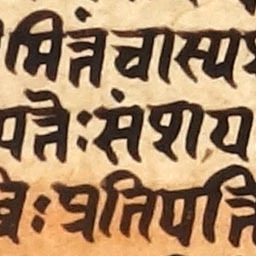 मित्तं चास्य
पत्तेः संशय
त्रिः प्रतिपत्ति